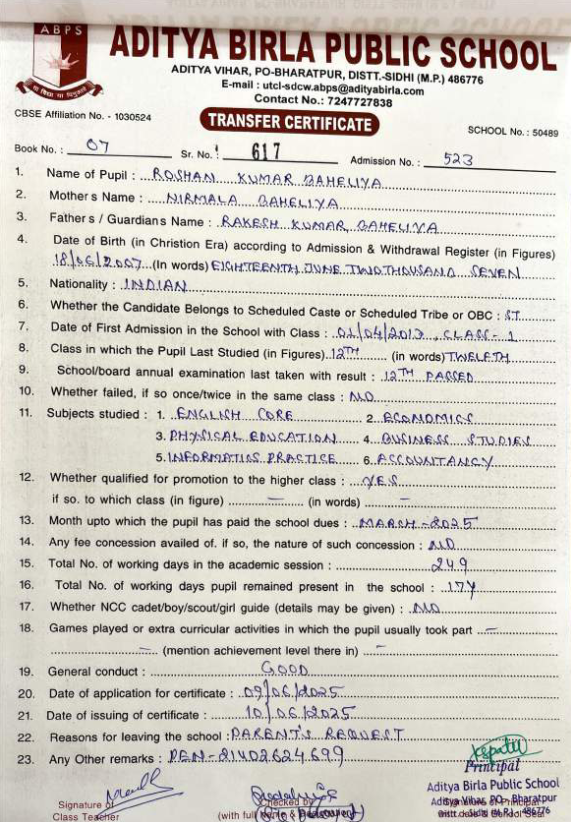 ABPS
ADITYA BIRLA PUBLIC SCHOOL
ADITYA VIHAR, PO-BHARATPUR, DISTT.-SIDHI (M.P.) 486776
E-mail : utcl-sdcw.abps@adityabirla.com
Contact No.: 7247727838
CBSE Affiliation No. - 1030524
TRANSFER CERTIFICATE
SCHOOL No. : 50489
Book No. : 07 Sr. No. : 617 Admission No. : 523
1. Name of Pupil : ROSHAN KUMAR BAHELIYA
2. Mother s Name : NIRMALA BAHELIYA
3. Father s / Guardian s Name : RAKESH KUMAR BAHELIYA
4. Date of Birth (in Christion Era) according to Admission & Withdrawal Register (in Figures)
18/06/2007 (In words) EIGHTEENTH JUNE TWO THOUSAND SEVEN
5. Nationality : INDIAN
6. Whether the Candidate Belongs to Scheduled Caste or Scheduled Tribe or OBC : ST
7. Date of First Admission in the School with Class : 01/04/2013, CLASS - 1
8. Class in which the Pupil Last Studied (in Figures) 12TH (in words) TWELFTH
9. School/board annual examination last taken with result : 12TH PASSED
10. Whether failed, if so once/twice in the same class : NO
11. Subjects studied : 1. ENGLISH CORE 2. ECONOMICS
3. PHYSICAL EDUCATION 4. BUSINESS STUDIES
5. INFORMATICS PRACTICE 6. ACCOUNTANCY
12. Whether qualified for promotion to the higher class : YES
if so. to which class (in figure) — (in words) —
13. Month upto which the pupil has paid the school dues : MARCH - 2025
14. Any fee concession availed of. if so, the nature of such concession : NO
15. Total No. of working days in the academic session : 249
16. Total No. of working days pupil remained present in the school : 174
17. Whether NCC cadet/boy/scout/girl guide (details may be given) : NO
18. Games played or extra curricular activities in which the pupil usually took part —
— (mention achievement level there in) —
19. General conduct : GOOD
20. Date of application for certificate : 09/06/2025
21. Date of issuing of certificate : 10/06/2025
22. Reasons for leaving the school : PARENT'S REQUEST
23. Any Other remarks : PEN - 21402624699
Principal
Aditya Birla Public School
Aditya Vihar, PO- Bharatpur
Distt. - Sidhi (M.P.) - 486776
Signature of
Class Teacher
Checked by
(with full Name &
Signature of Principal
with date & School Seal